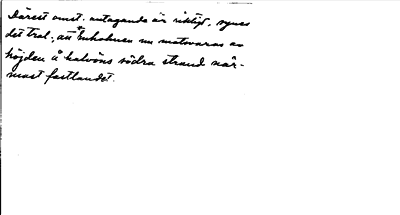 Därest omst. antagande är riktigt, synes
det trol., att Enholmen nu motsvaras av
höjden å halvöns södra strand när-
mast fastlandet.